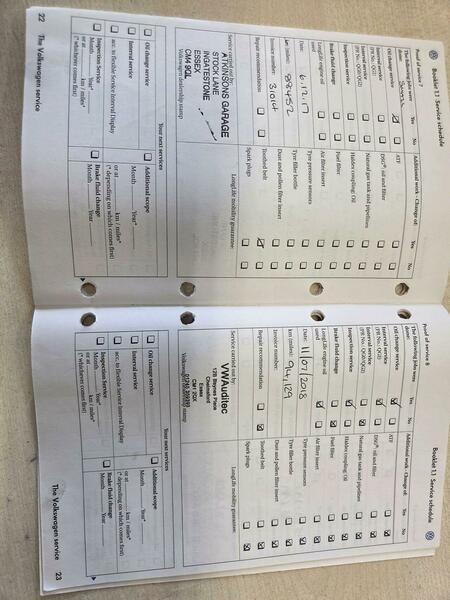 Booklet 3.1 Service schedule
Proof of service 7
The following jobs were done: Yes No
Oil change service
Interval service
(PR No.: QG1)
Interval service
(PR No.: QG0/QG2)
Inspection service
Brake fluid change
LongLife engine oil used
Date: 6.12.17
km (miles): 88452
Invoice number: 31014
Repair recommendation
Additional work - Change of: Yes No
ATF
DSG®: oil and filter
Natural gas tank and pipelines
Haldex coupling: Oil
Fuel filter
Air filter insert
Tyre pressure sensors
Tyre filler bottle
Dust and pollen filter insert
Toothed belt
Spark plugs
LongLife mobility guarantee:
Service carried out by:
ATKINSONS GARAGE
STOCK LANE
INGATESTONE
ESSEX
CM4 9QL
Volkswagen dealership stamp
Your next services
Oil change service
Interval service
acc. to flexible Service Interval Display
Inspection Service
Month Year*
or at km / miles*
(* whichever comes first)
Additional scope
Month Year*
or at km / miles*
(* depending on which comes first)
Brake fluid change
Month Year
22 The Volkswagen service
Booklet 3.1 Service schedule
Proof of service 8
The following jobs were done: Yes No
Oil change service
Interval service
(PR No.: QG1)
Interval service
(PR No.: QG0/QG2)
Inspection service
Brake fluid change
LongLife engine oil used
Date: 11/07/2018
km (miles): 94,129
Invoice number:
Repair recommendation
Additional work - Change of: Yes No
ATF
DSG®: oil and filter
Natural gas tank and pipelines
Haldex coupling: Oil
Fuel filter
Air filter insert
Tyre pressure sensors
Tyre filler bottle
Dust and pollen filter insert
Toothed belt
Spark plugs
LongLife mobility guarantee:
Service carried out by:
VWAuditec
Chelmsford
Essex
Your next services
Oil change service
Interval service
acc. to flexible Service Interval Display
Inspection Service
Month Year*
or at km / miles*
(* whichever comes first)
Additional scope
Month Year*
or at km / miles*
(* depending on which comes first)
Brake fluid change
Month Year
The Volkswagen service 23